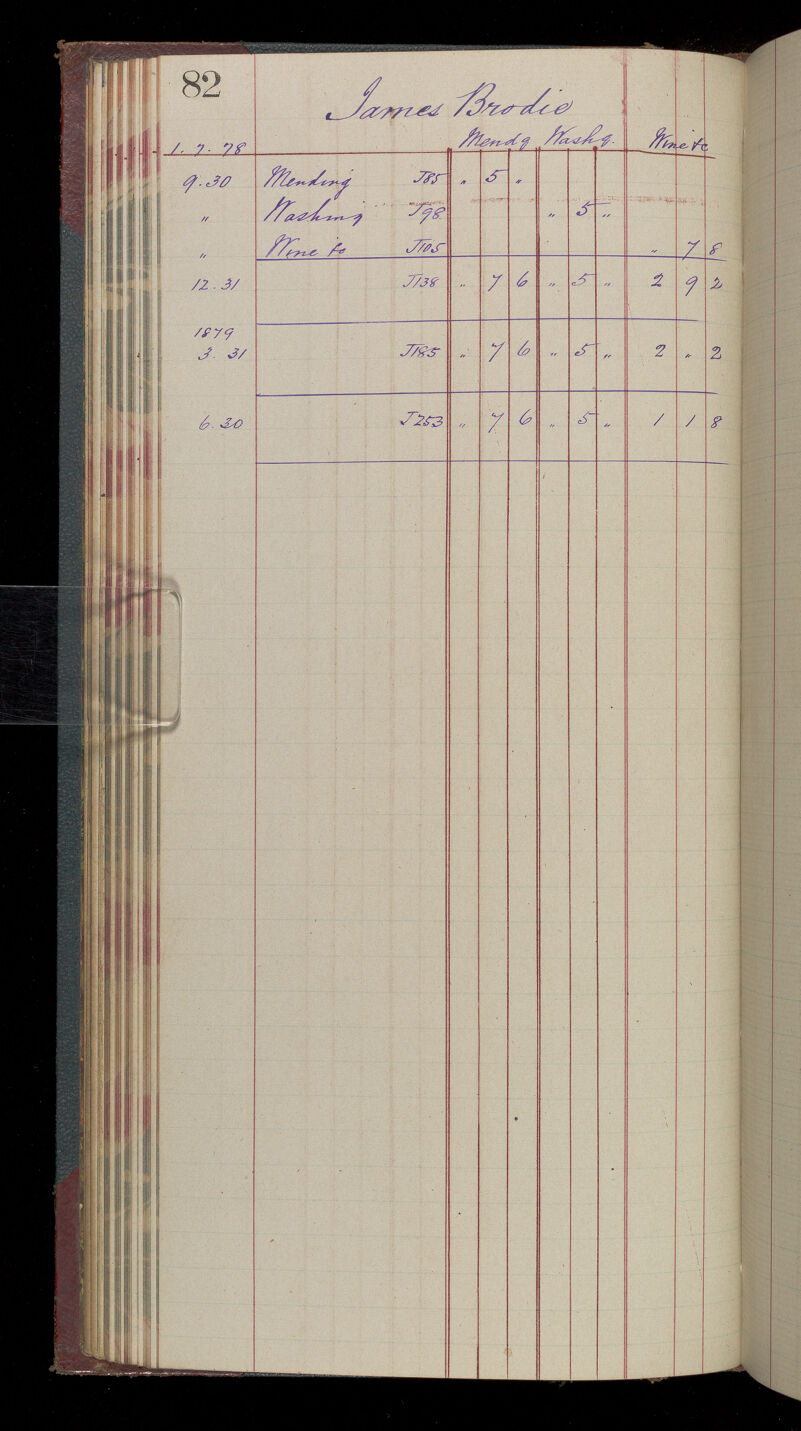 82
James Brodie
1. 7. 78 Mendg Washg. Wine &c
9. 30 Mending J85 " 5 "
" Washing J98 " 5 "
" Wine &c J105 " 7 8
12. 31 J138 " 7 6 " 5 " 2 9 2
1879
3. 31 J185 " 7 6 " 5 " 2 " 2
6. 30 J253 " 7 6 " 5 " 1 1 8